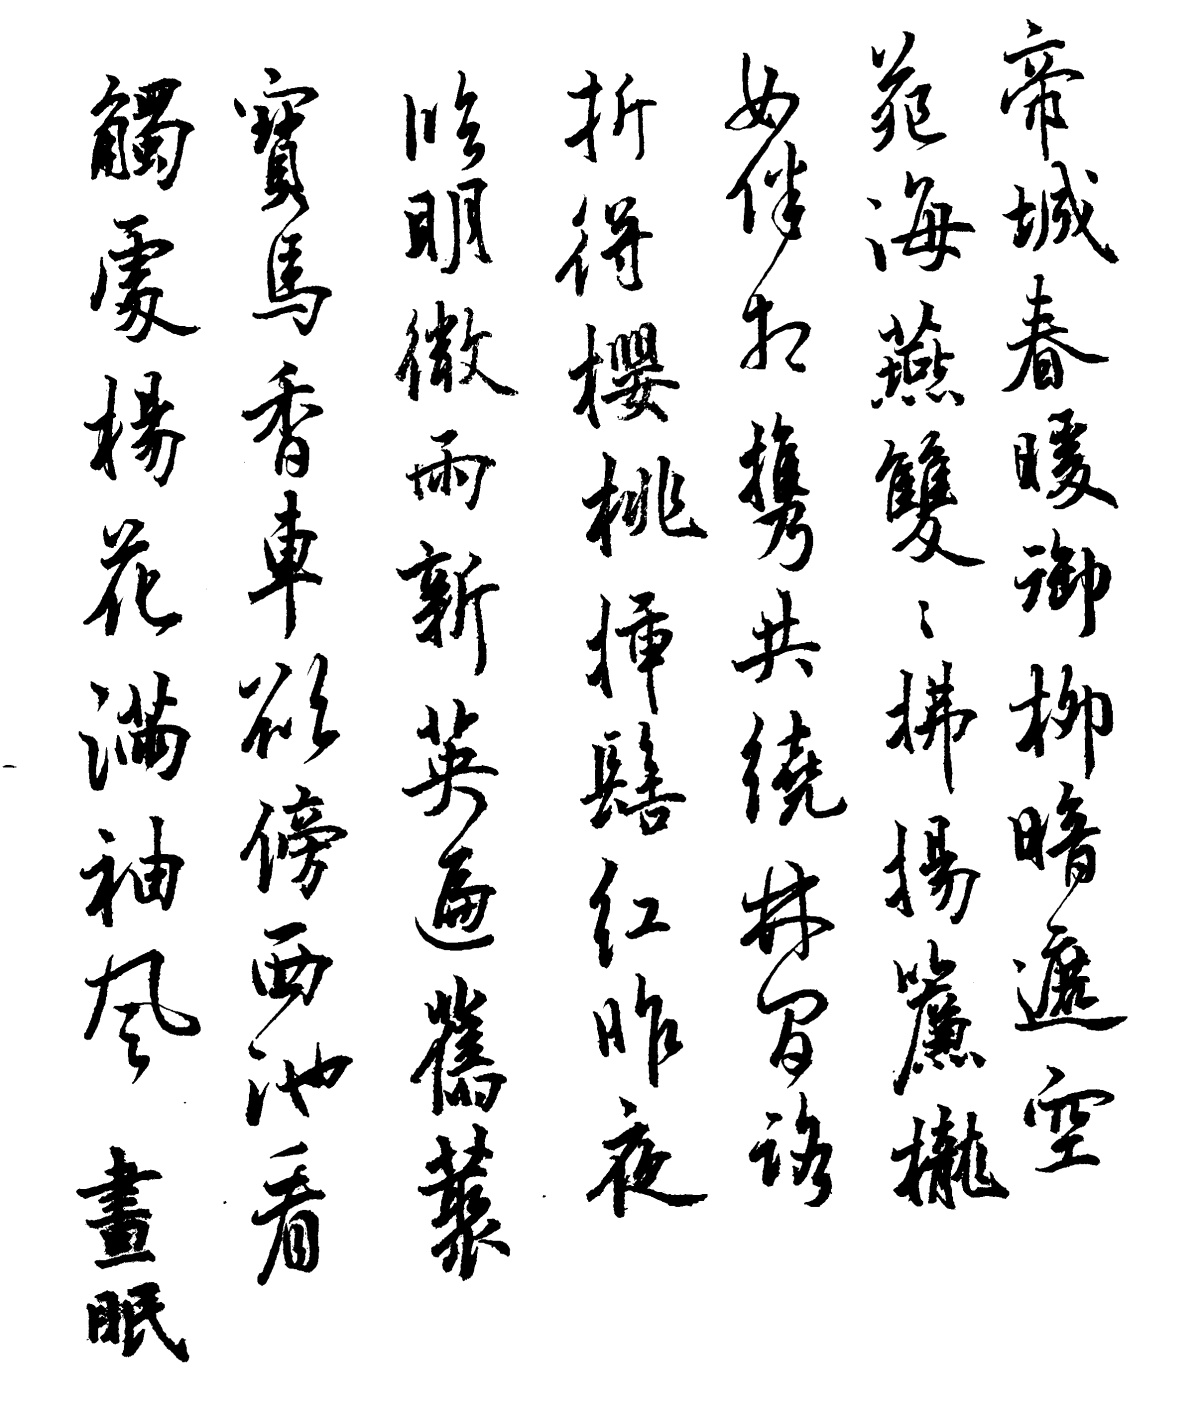 帝城春暖御柳暗遮空
苑海燕雙〻拂揚簾櫳
女伴相攜共繞林間路
折得櫻桃插髻紅昨夜
臨明微雨新英遍舊叢
寶馬香車欲傍西池看
觸處楊花滿袖風 晝眠